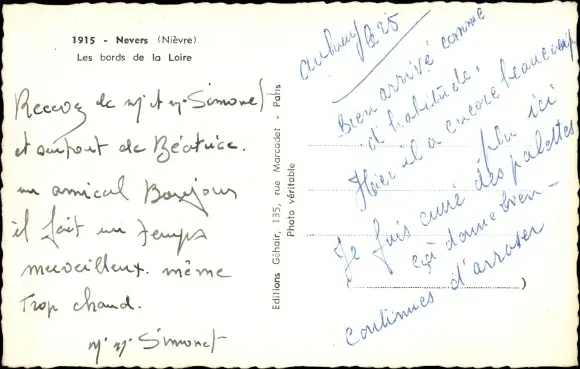 1915 - Nevers (Nièvre)
Les bords de la Loire
Recevez de Mr et Me Simonet
et surtout de Béatrice.
un amical Bonjour
il fait un temps
merveilleux. même
trop chaud.
Mr Me Simonet
Editions Géhair, 135, rue Marcadet - Paris
Photo véritable
Bien arrivé comme
d'habitude.
Hier il a encore beaucoup
plu ici
Je fais des palettes
çà donne bien -
continues d'arroser